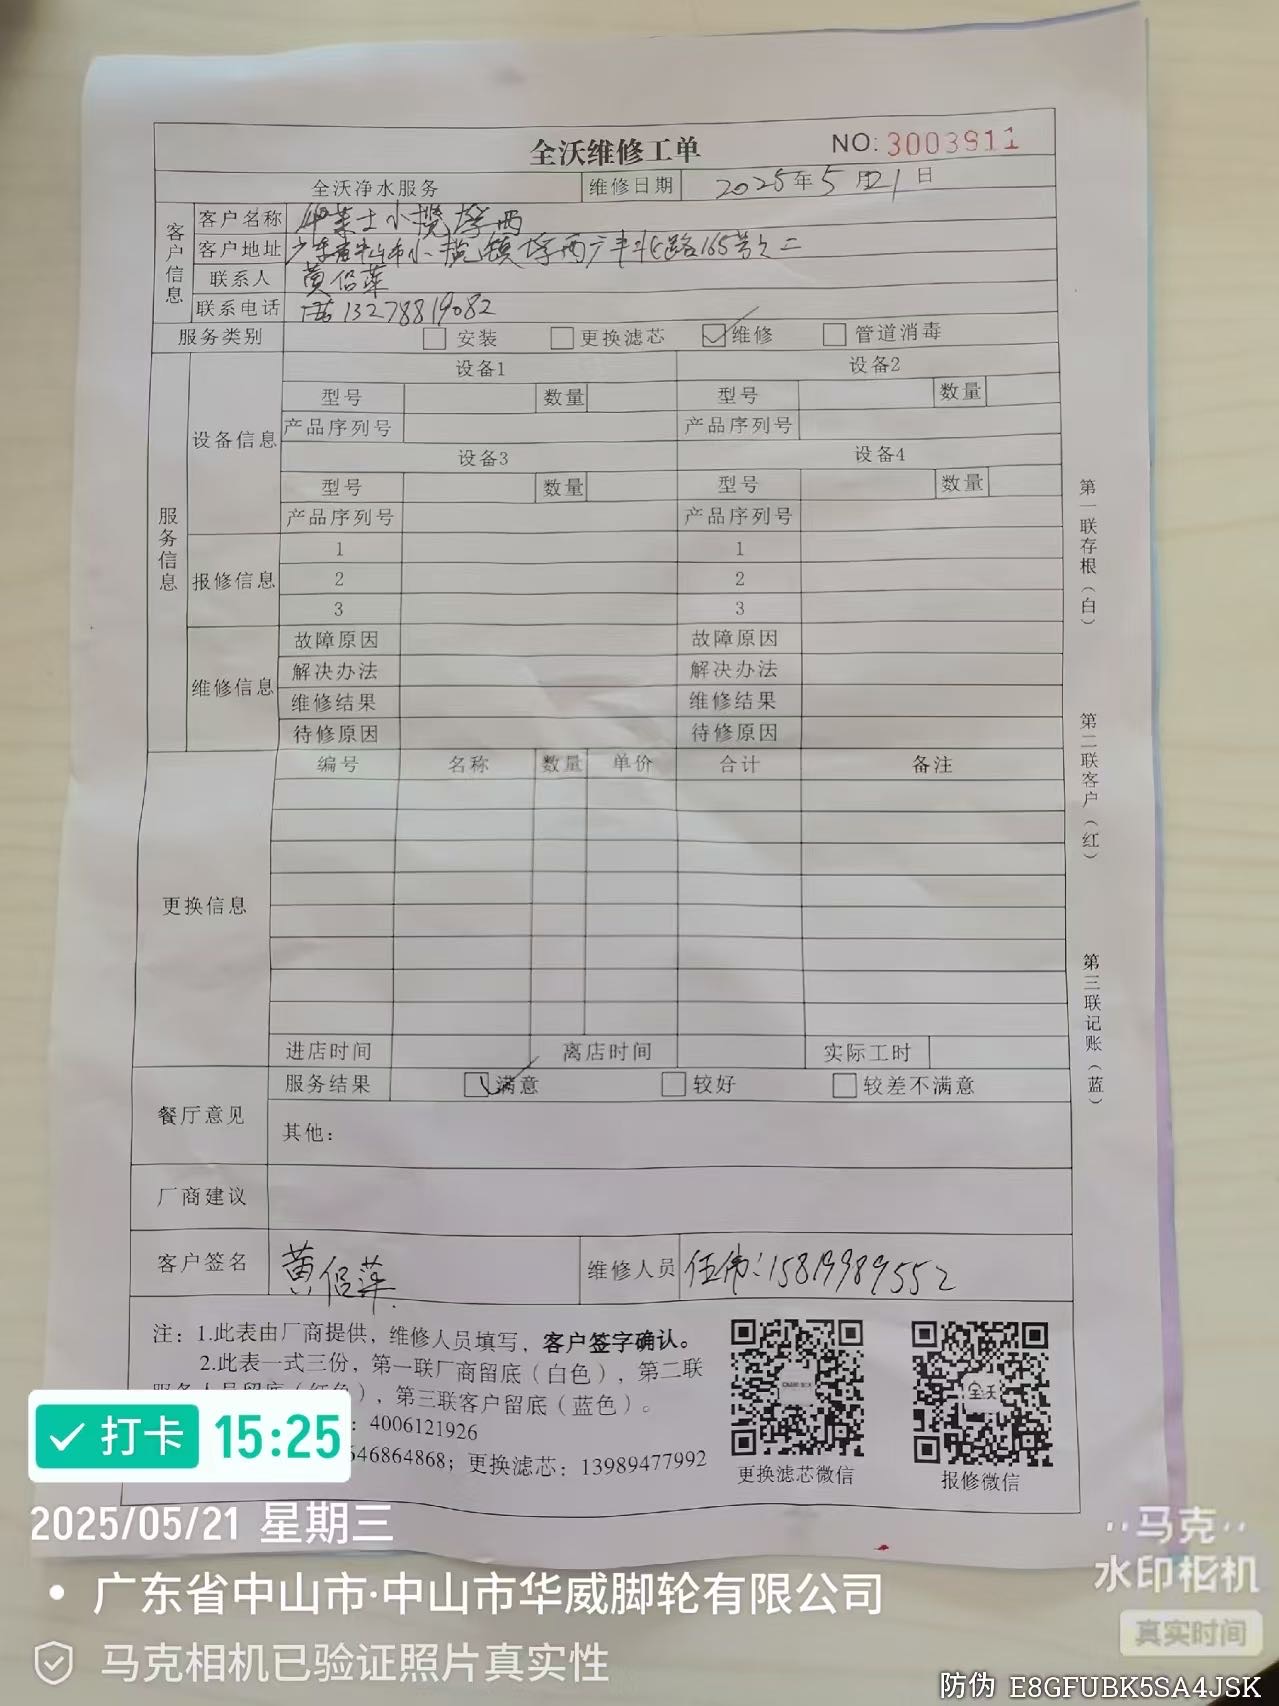 全沃维修工单 NO:3003911
全沃净水服务 维修日期 2025年5月21日
客户信息
客户名称 华莱士小榄埒西
客户地址 广东省中山市小榄镇埒西广丰北路165号之二
联系人 黄侣萍
联系电话 13278819082
服务类别 安装 更换滤芯 维修 管道消毒
服务信息
设备信息
设备1 设备2
型号 数量 型号 数量
产品序列号 产品序列号
设备3 设备4
型号 数量 型号 数量
产品序列号 产品序列号
报修信息
1 1
2 2
3 3
维修信息
故障原因 故障原因
解决办法 解决办法
维修结果 维修结果
待修原因 待修原因
更换信息
编号 名称 数量 单价 合计 备注
进店时间 离店时间 实际工时
餐厅意见
服务结果 满意 较好 较差不满意
其他：
厂商建议
客户签名 黄侣萍 维修人员 伍伟：15819989552
注：1.此表由厂商提供，维修人员填写，客户签字确认。
2.此表一式三份，第一联厂商留底（白色），第二联
服务人员留底（红色），第三联客户留底（蓝色）。
：4006121926
546864868；更换滤芯：13989477992
更换滤芯微信 报修微信
全沃
第一联存根（白）
第二联客户（红）
第三联记账（蓝）
打卡 15:25
2025/05/21 星期三
广东省中山市·中山市华威脚轮有限公司
马克相机已验证照片真实性
马克
水印相机
真实时间
防伪 E8GFUBK5SA4JSK